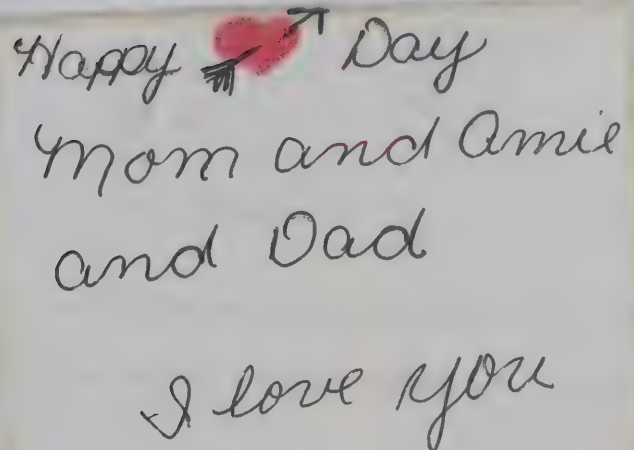 Happy Day
Mom and Amie
and Dad
I love you